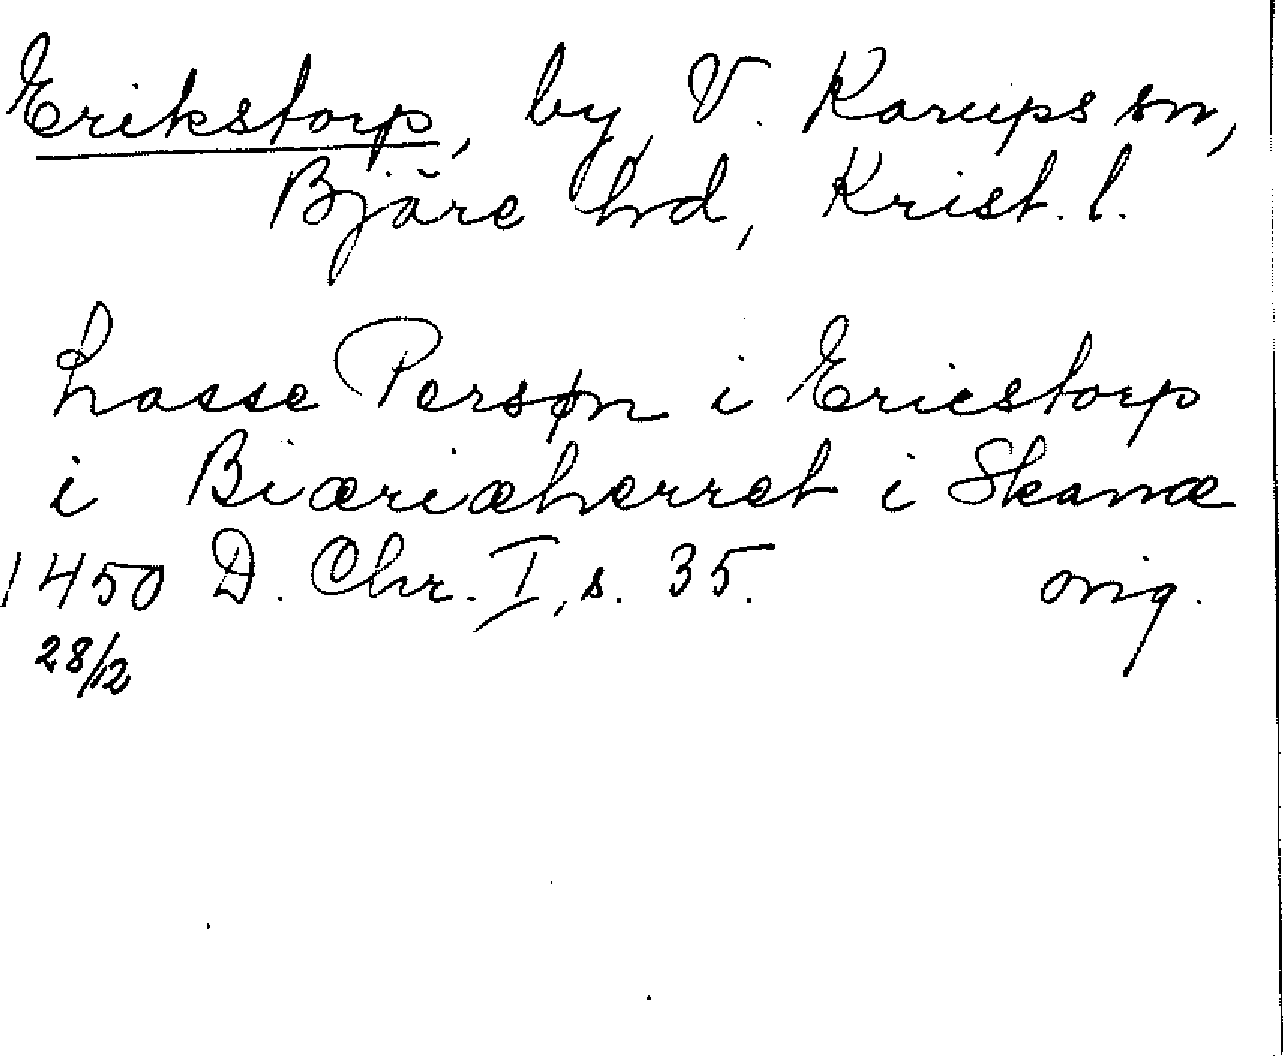 Erikstorp, by, V. Karups sn,
Bjäre hd, Krist. l.
Lasse Persøn i Ericstorp
i Biæriæherret i Skanæ
1450 D. Chr. I, s. 35. orig.
28/12